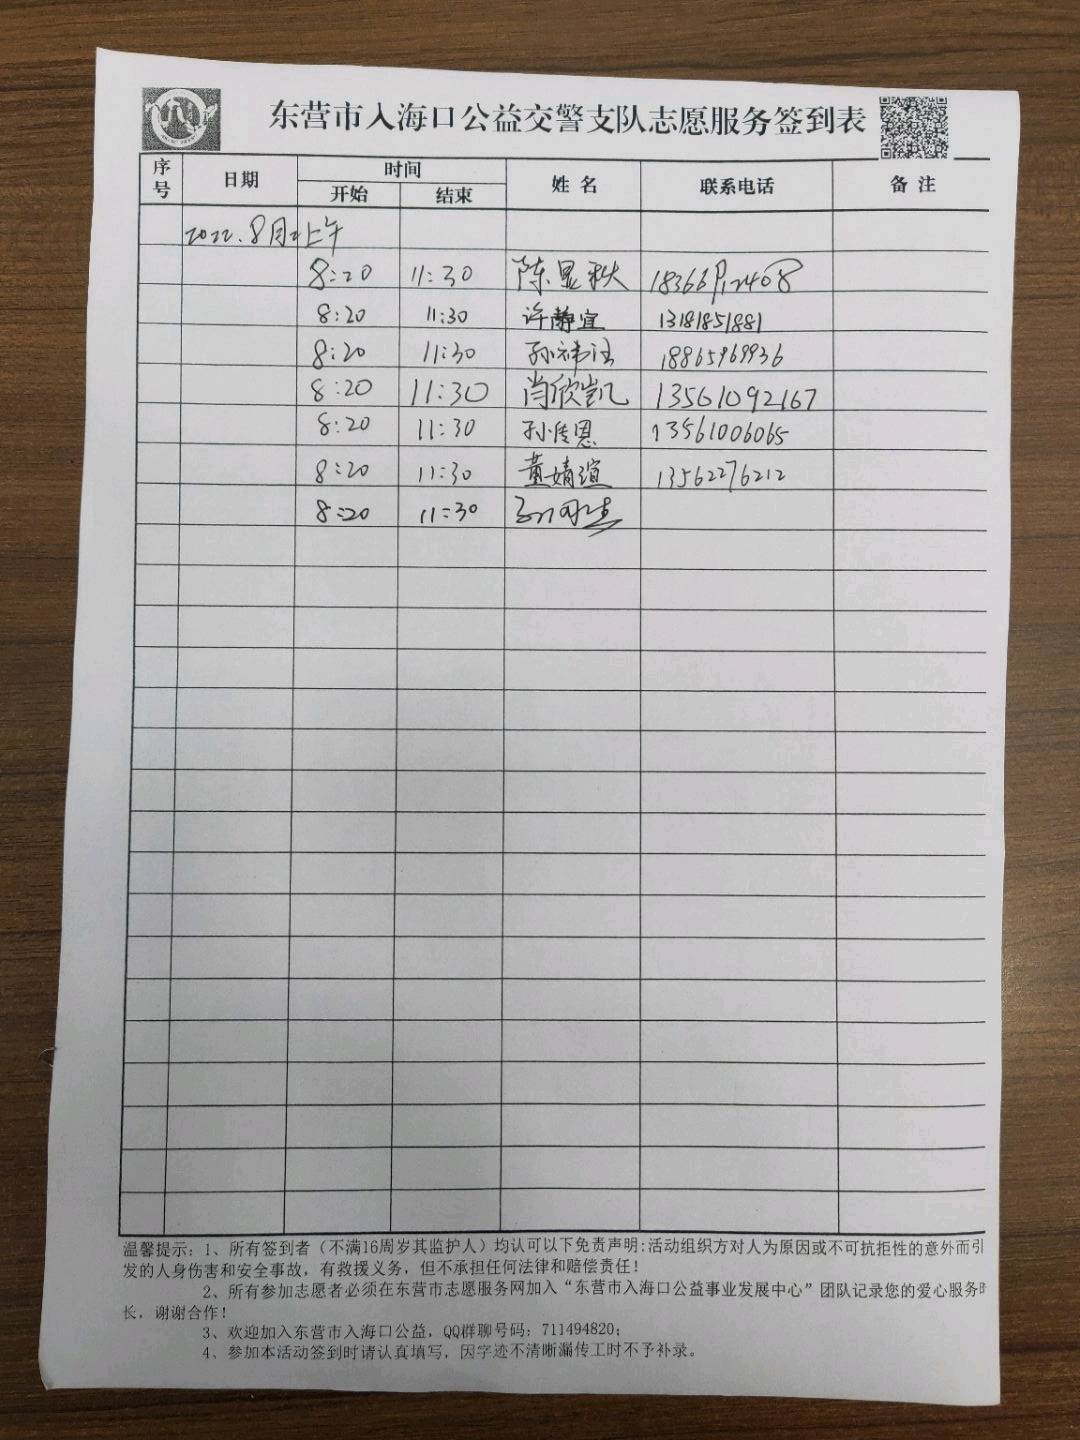 东营市入海口公益交警支队志愿服务签到表
序号 日期 时间 姓 名 联系电话 备 注
开始 结束
2022.8月 上午
8:20 11:30 陈显秋 18366
8:20 11:30 许静宜 13181851881
8:20 11:30 孙祎 18865969936
8:20 11:30 肖欣凯 13561092167
8:20 11:30 孙传恩 13561006065
8:20 11:30 董婧瑄 13562276212
8:20 11:30
温馨提示:1、所有签到者(不满16周岁其监护人)均认可以下免责声明:活动组织方对人为原因或不可抗拒性的意外而引
发的人身伤害和安全事故,有救援义务,但不承担任何法律和赔偿责任!
2、所有参加志愿者必须在东营市志愿服务网加入“东营市入海口公益事业发展中心”团队记录您的爱心服务时
长,谢谢合作!
3、欢迎加入东营市入海口公益,QQ群聊号码:711494820;
4、参加本活动签到时请认真填写,因字迹不清晰漏传工时不予补录。